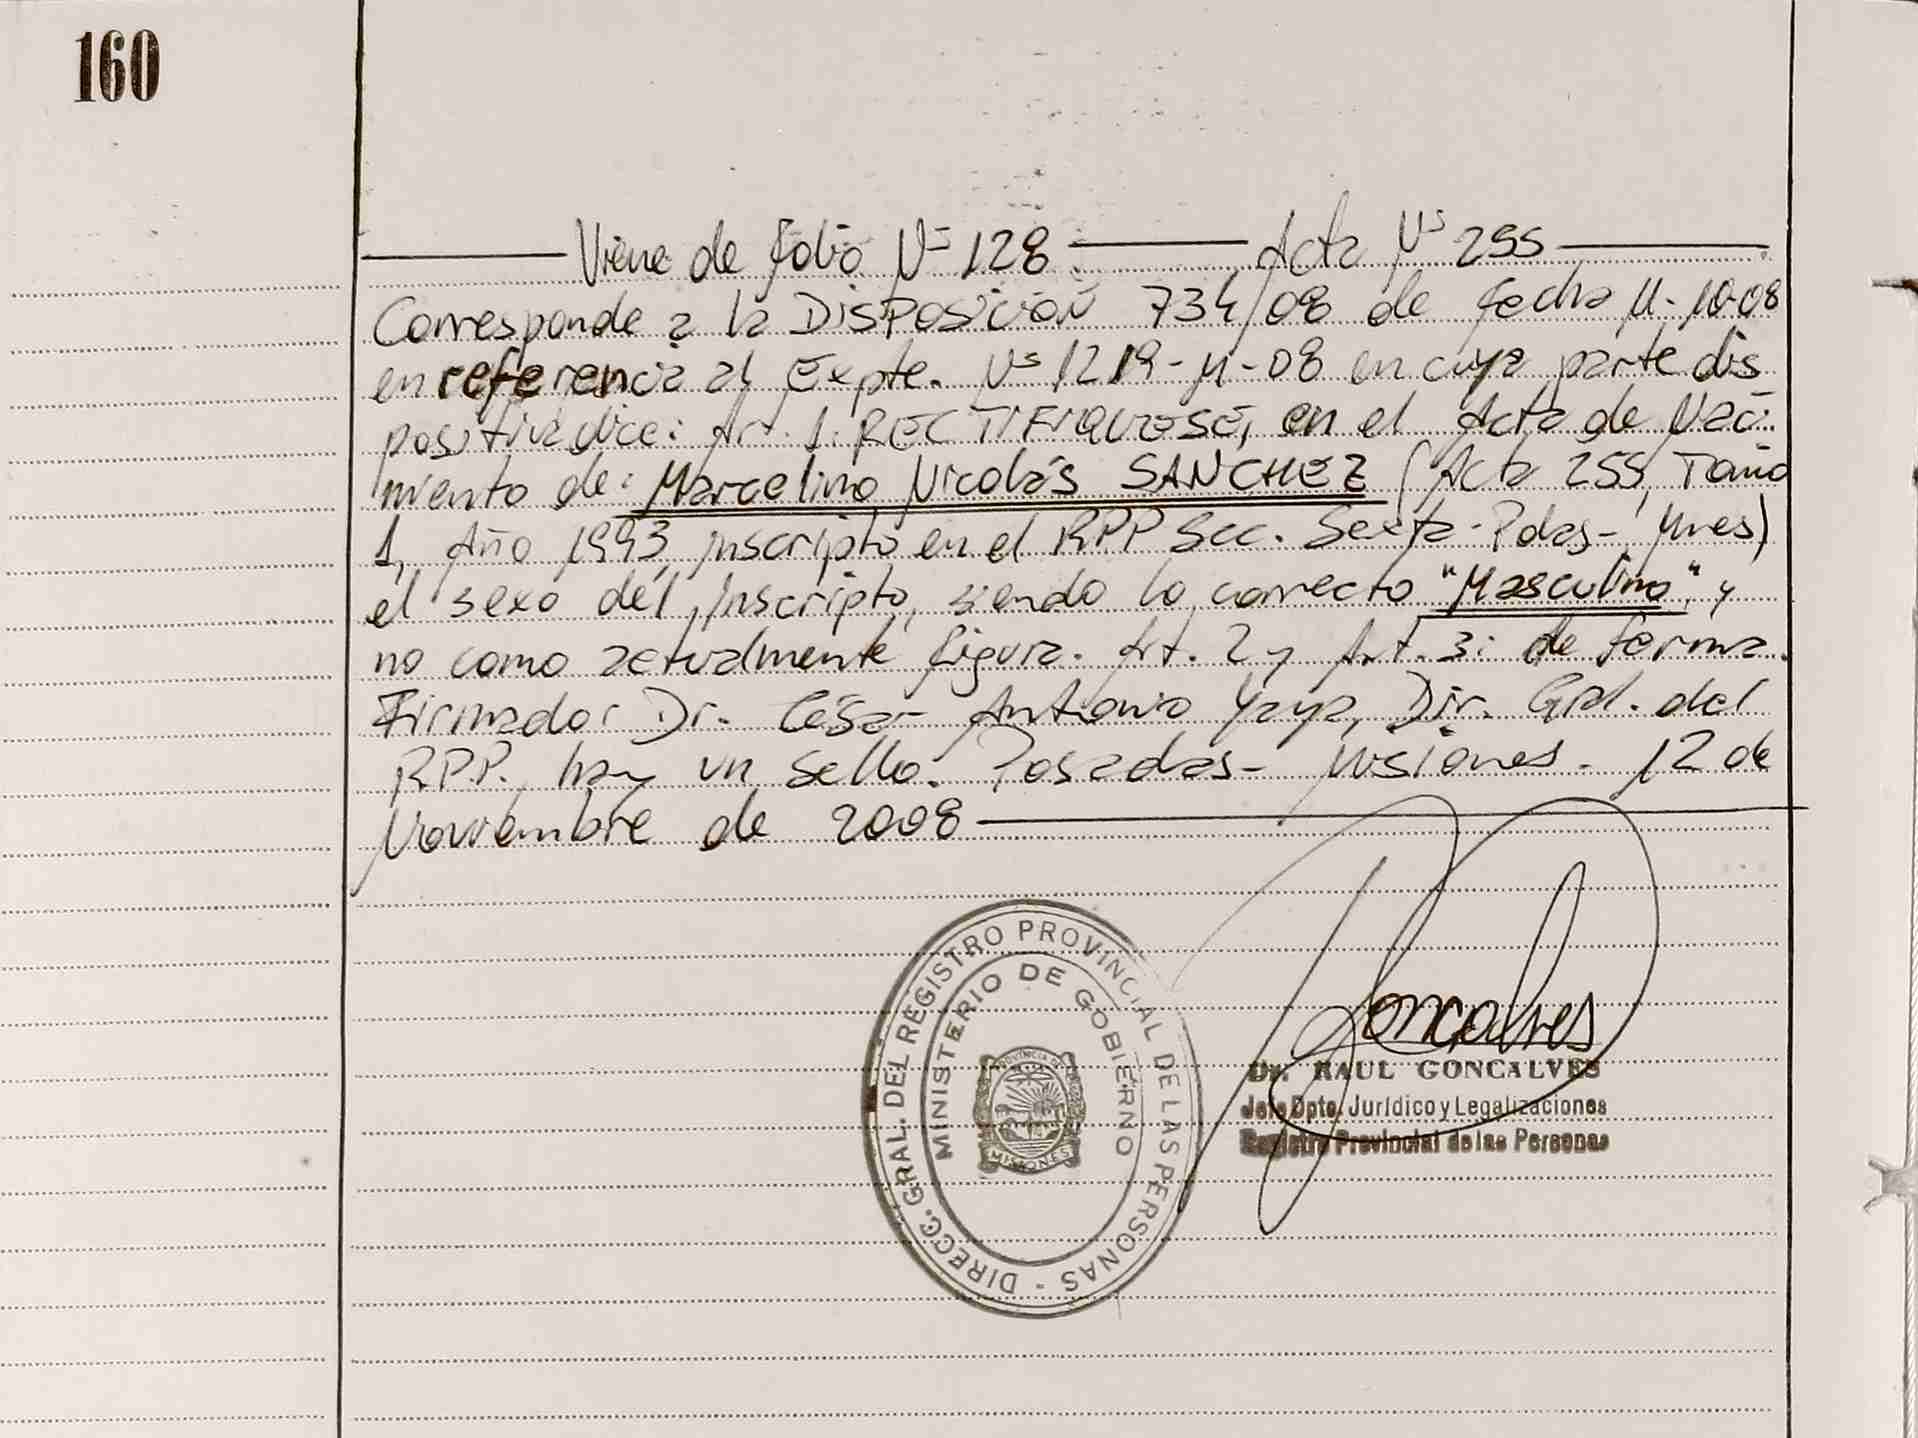 160
Viene de folio Nº 128. Acta Nº 255
Corresponde a la Disposición 734/08 de fecha 11-10-08
en referencia al Expte. Nº 1219-M-08 en cuya parte dis
positiva dice: Art. 1. RECTIFIQUESE, en el Acta de Naci
miento de: Marcelino Nicolás SANCHEZ (Acta 255, Tomo
1, Año 1993, inscripto en el RPP Sec. Sexta - Pdas - Mnes)
el sexo del inscripto, siendo lo correcto "Masculino", y
no como actualmente figura. Art. 2 y Art. 3: de forma.
Firmado: Dr. César Antonio Yaya, Dir. Gral. del
RPP. hay un sello. Posadas - Misiones. 12 de
Noviembre de 2008
DIRECC. GRAL. DEL REGISTRO PROVINCIAL DE LAS PERSONAS -
MINISTERIO DE GOBIERNO
PROVINCIA DE
MISIONES
Goncalves
Dr. RAUL GONCALVES
Jefe Dpto. Jurídico y Legalizaciones
Registro Provincial de las Personas